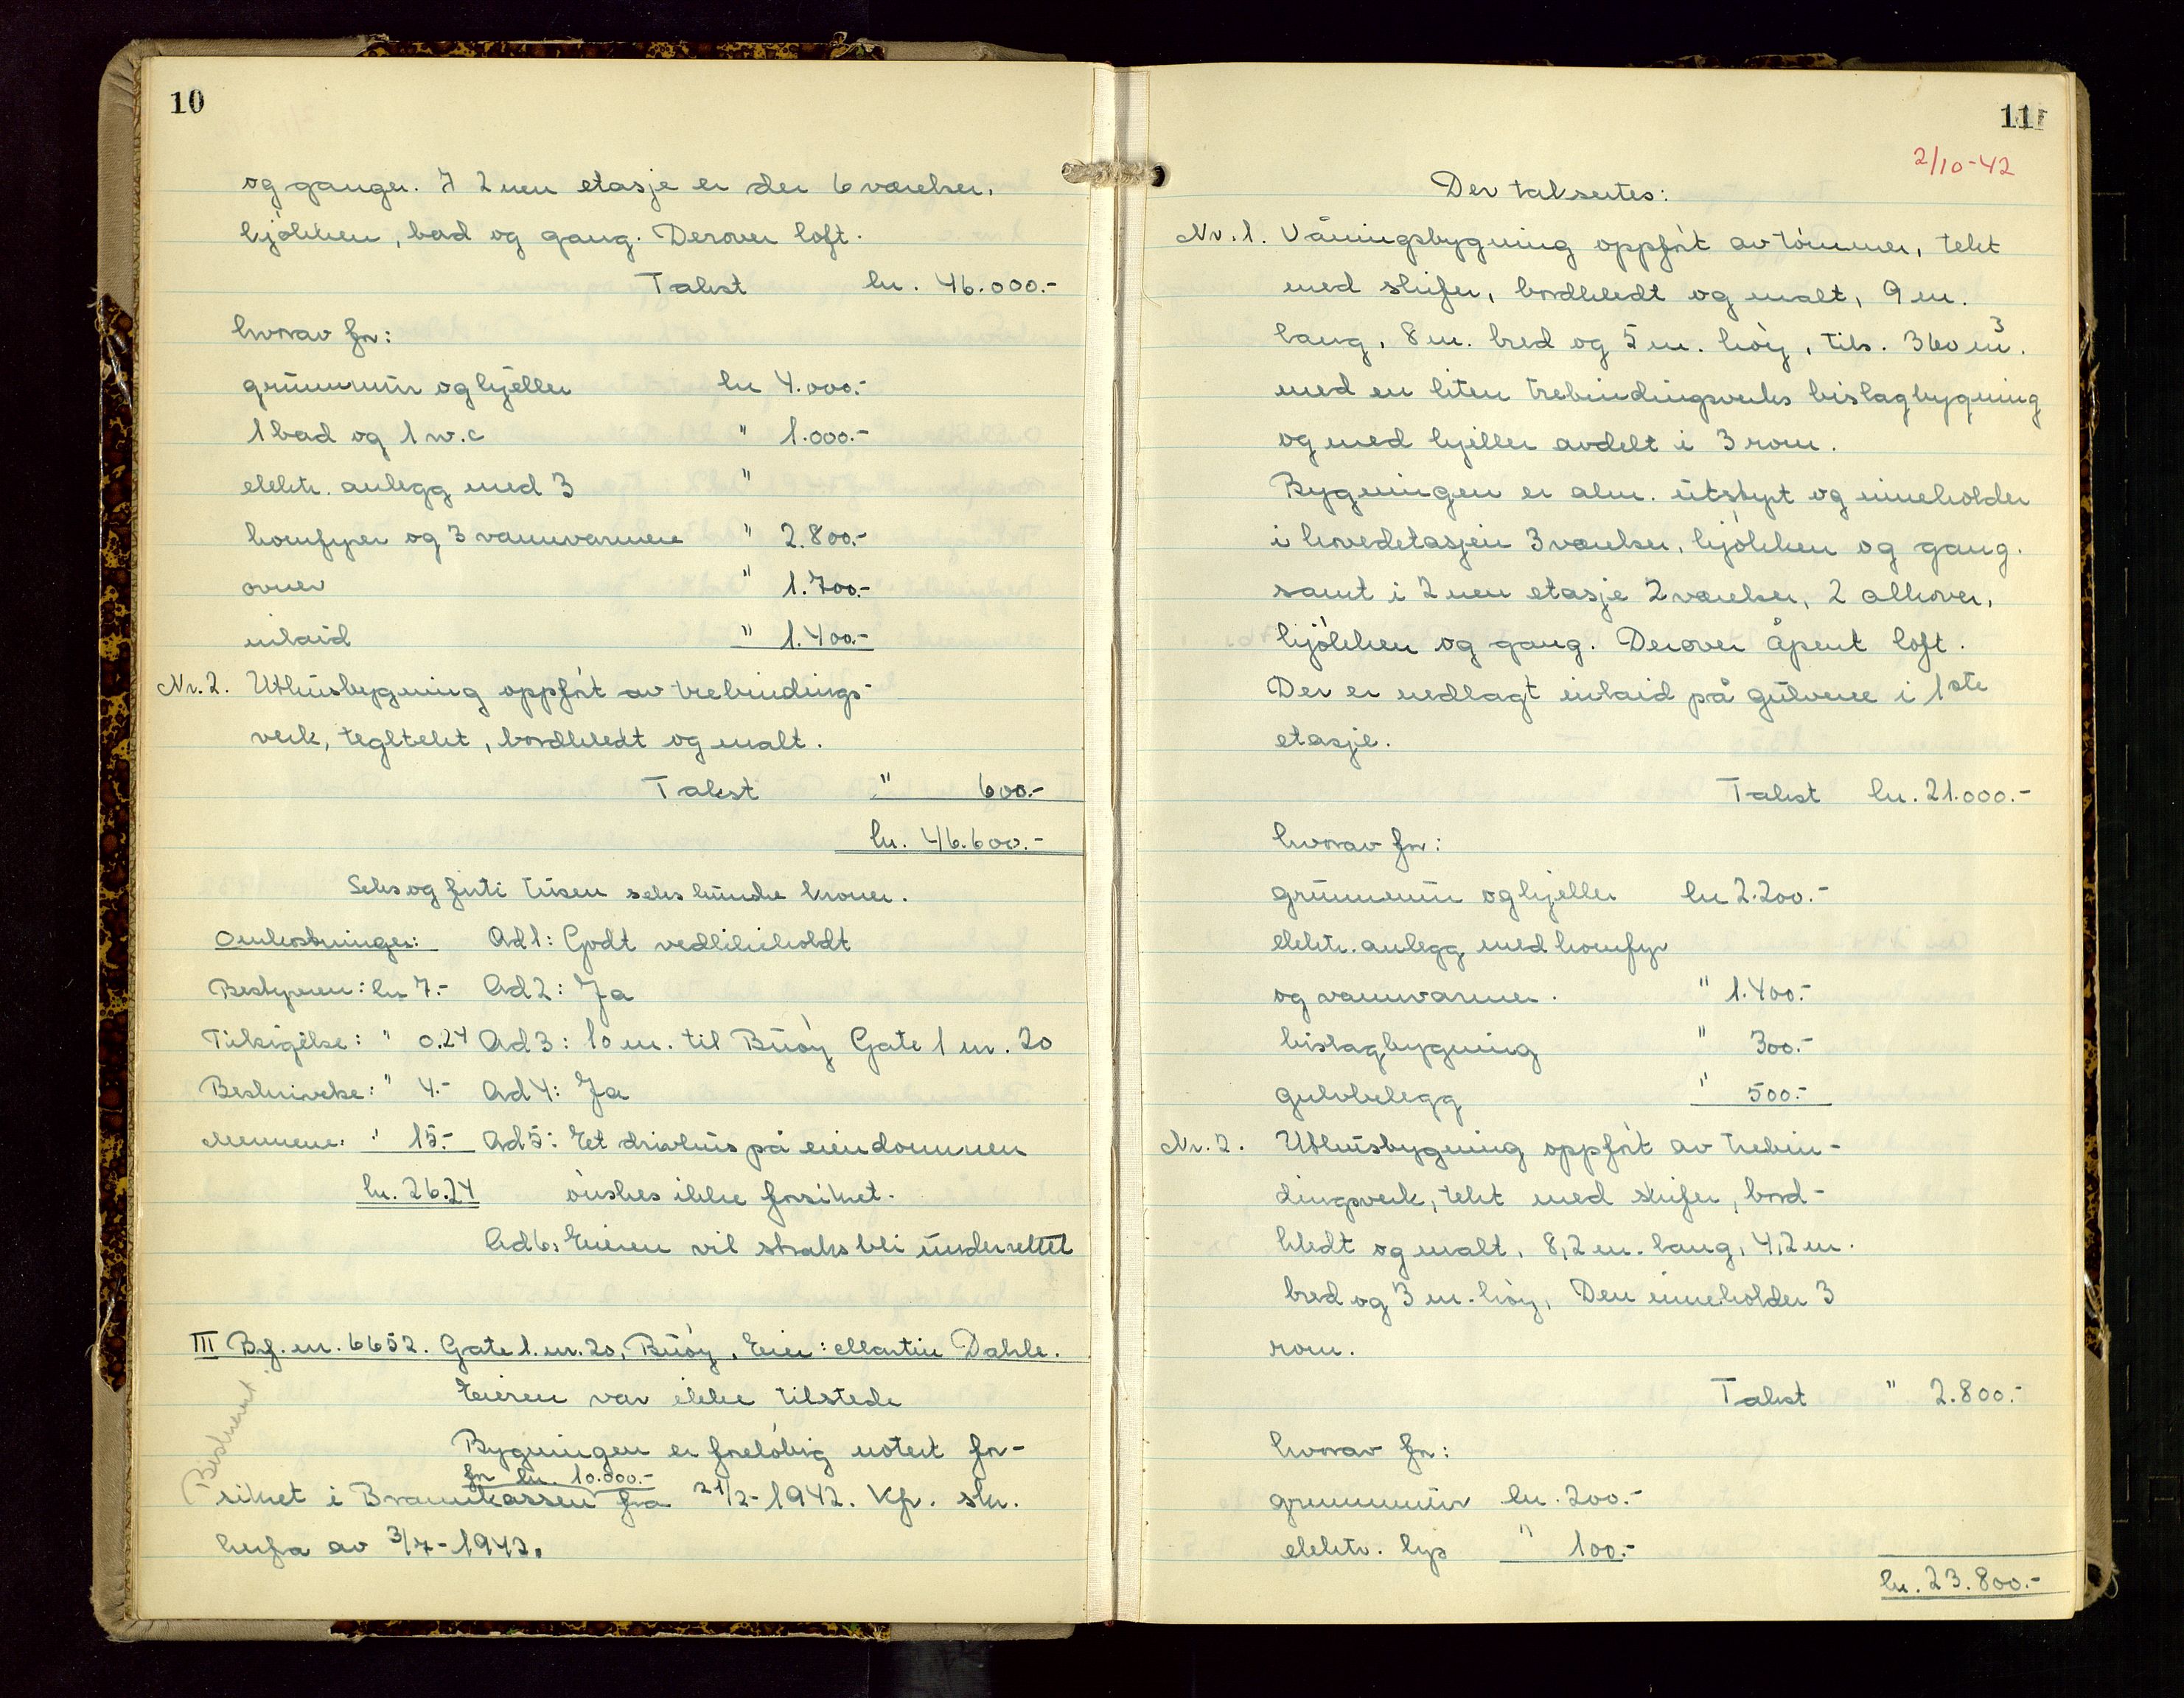 10
og ganger. I 2nen etasje er der 6 værelser,
kjøkken, bad og gang. Derover loft.
Takst kr. 46.000.-
hvorav for:
grunnmur og kjeller kr 4.000.-
1 bad og 1 w.c " 1.000.-
elektr. anlegg med 3 "
komfyrer og 3 vannvarmere " 2.800.-
ovner " 1.700.-
inlaid " 1.400.-
Nr. 2. Uthusbygning oppført av trebindings-
verk, tegltekt, bordkledt og malt.
Takst " 600.-
kr. 46.600.-
Seks og førti tusen seks hundre kroner.
Omkostninger: Ad 1: Godt vedlikeholdt
Bestyreren: kr 7.- Ad 2: Ja
Tilsigelse: " 0.24 Ad 3: 10 m. til Buøy Gate 1 nr. 20
Beskrivelse: " 4.- Ad 4: Ja
Mennene: " 15.- Ad 5: Et drivhus på eiendommen
kr. 26.24 ønskes ikke forsikret.
Ad 6: Eieren vil straks bli underrettet
III Brf. nr. 6652. Gate 1. nr. 20, Buøy. Eier: Martin Dahle.
Eieren var ikke tilstede
Beskrevet
Bygningen er foreløbig notert for-
for kr. 10.000.-
sikret i Brannkassen fra 21/2-1942. Kfr. skr.
herfra av 3/7-1942.
11
2/10-42
Der taksertes:
Nr. 1. Våningsbygning oppført av tømmer, tekt
med skifer, bordkledt og malt, 9 m.
lang, 8 m. bred og 5 m. høy, tils. 360 m3.
med en liten trebindingsverks bislagbygning
og med kjeller avdelt i 3 rom.
Bygningen er alm. utstyrt og inneholder
i hovedetasjen 3 værelser, kjøkken og gang.
samt i 2nen etasje 2 værelser, 2 alkover,
kjøkken og gang. Derover åpent loft.
Der er nedlagt inlaid på gulvene i 1ste
etasje.
Takst kr. 21.000.-
hvorav for:
grunnmur og kjeller kr 2.200.-
elektr. anlegg med komfyr
og vannvarmer. " 1.400.-
bislagbygning " 300.-
gulvbelegg " 500.-
Nr. 2. Uthusbygning oppført av trebin-
dingsverk, tekt med skifer, bord-
kledt og malt, 8,2 m. lang, 4,2 m.
bred og 3 m. høy, Den inneholder 3
rom.
Takst " 2.800.-
hvorav for:
grunnmur kr. 200.-
elektr. lys " 100.-
kr. 23.800.-